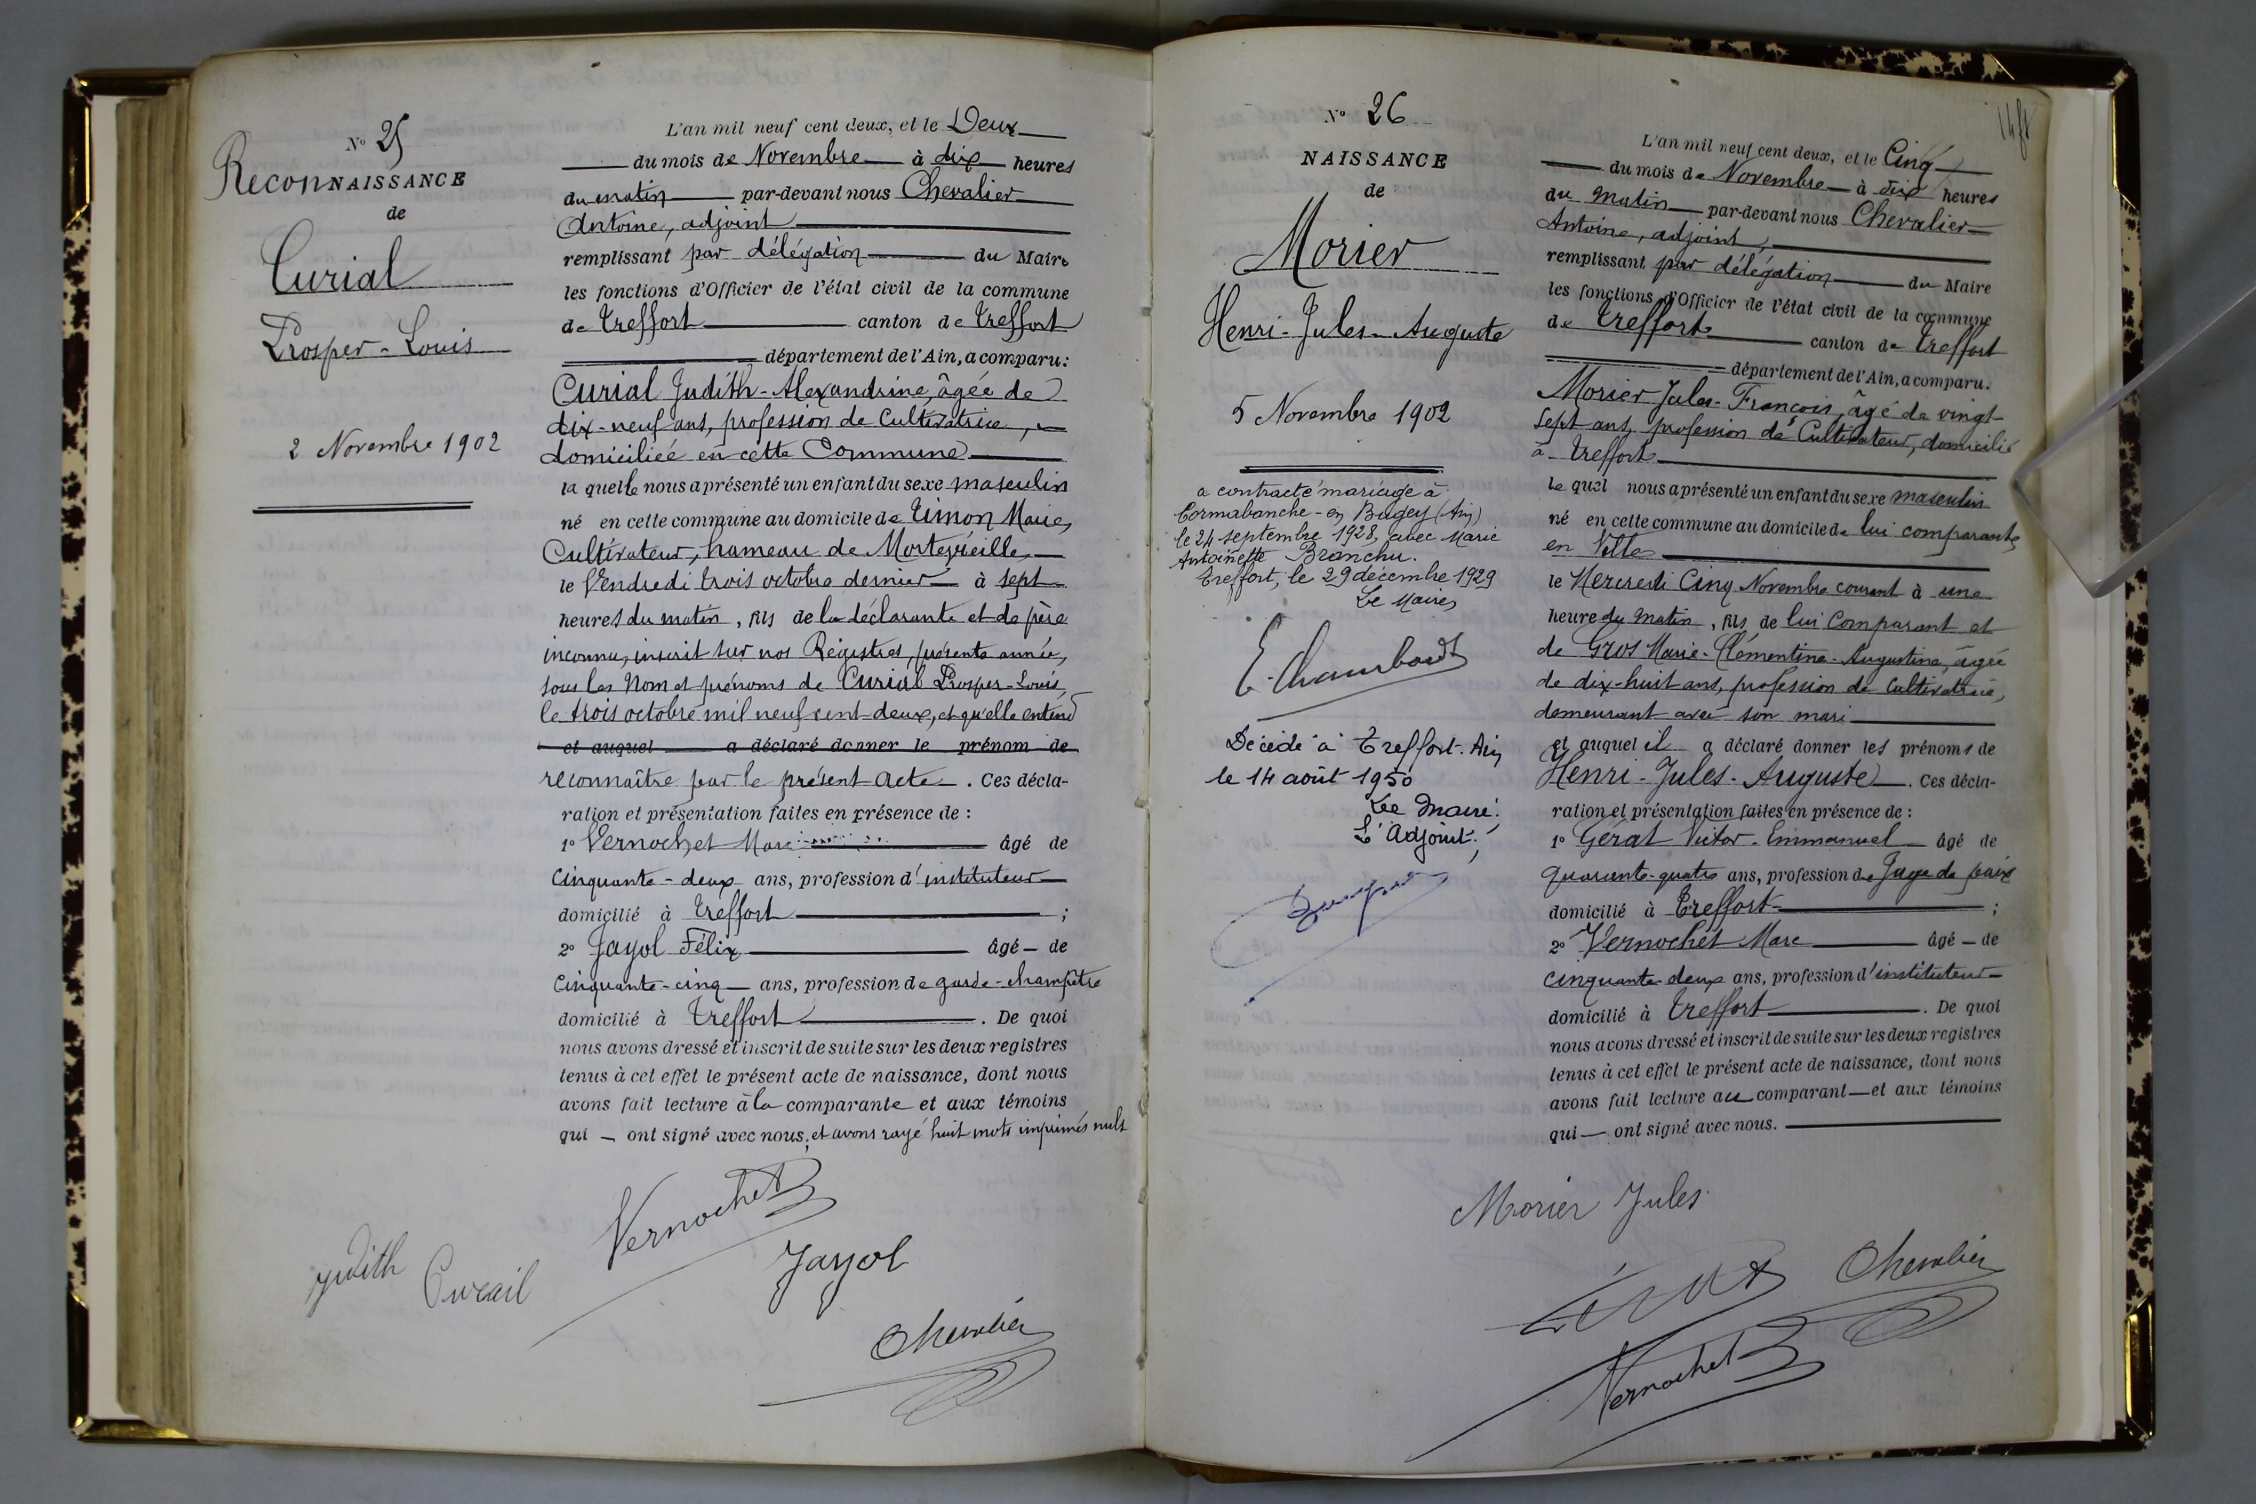 N° 25
ReconNAISSANCE
de
Curial
Prosper-Louis
2 Novembre 1902
L'an mil neuf cent deux, et le Deux
du mois de Novembre à dix heures
du matin par-devant nous Chevalier
Antoine, adjoint
remplissant par délégation du Maire
les fonctions d'Officier de l'état civil de la commune
de Treffort canton de Treffort
département de l'Ain, a comparu:
Curial Judith-Alexandrine, âgée de
dix-neuf ans, profession de Cultivatrice,
domiciliée en cette Commune
la quelle nous a présenté un enfant du sexe masculin
né en cette commune au domicile de Timon Marie,
Cultivateur, hameau de Montevieille,
le Vendredi trois octobre dernier à sept
heures du matin, fils de la déclarante et de père
inconnu, inscrit sur nos Registres, présente année,
sous les Nom et prénoms de Curial Prosper-Louis,
le trois octobre mil neuf cent-deux, et qu'elle entend
et auquel a déclaré donner le prénom de
reconnaître par le présent acte. Ces décla-
ration et présentation faites en présence de:
1° Vernochet Marc âgé de
cinquante-deux ans, profession d'instituteur
domicilié à Treffort ;
2° Jayol Félix âgé de
cinquante-cinq ans, profession de garde-champêtre
domicilié à Treffort. De quoi
nous avons dressé et inscrit de suite sur les deux registres
tenus à cet effet le présent acte de naissance, dont nous
avons fait lecture à la comparante et aux témoins
qui ont signé avec nous, et avons rayé huit mots imprimés nuls
Vernochet
Judith Curail
Jayol
Chevalier
148
N° 26
NAISSANCE
de
Morier
Henri-Jules-Auguste
5 Novembre 1902
a contracté mariage à
Cormabanche-en Bugey (Ain)
le 24 septembre 1928, avec Marie
Antoinette Branchu.
Treffort, le 29 décembre 1929
Le Maire,
E. Chambard
Décédé à Treffort. Ain
le 14 août 1950
Le Maire:
L'Adjoint:
L'an mil neuf cent deux, et le Cinq
du mois de Novembre à dix heures
du matin par-devant nous Chevalier
Antoine, adjoint,
remplissant par délégation du Maire
les fonctions d'Officier de l'état civil de la commune
de Treffort canton de Treffort
département de l'Ain, a comparu.
Morier Jules-François, âgé de vingt
sept ans, profession de Cultivateur, domicilié
à Treffort
le quel nous a présenté un enfant du sexe masculin
né en cette commune au domicile de lui comparant,
en Ville
le Mercredi Cinq Novembre courant à une
heure du matin, fils de lui Comparant et
de Gros Marie-Clémentine-Augustine, âgée
de dix-huit ans, profession de Cultivatrice,
demeurant avec son mari
et auquel il a déclaré donner les prénoms de
Henri-Jules-Auguste. Ces décla-
ration et présentation faites en présence de:
1° Gérat Victor-Emmanuel âgé de
quarante-quatre ans, profession de Juge de paix
domicilié à Treffort ;
2° Vernochet Marc âgé de
cinquante-deux ans, profession d'instituteur
domicilié à Treffort. De quoi
nous avons dressé et inscrit de suite sur les deux registres
tenus à cet effet le présent acte de naissance, dont nous
avons fait lecture au comparant et aux témoins
qui ont signé avec nous.
Morier Jules
Chevalier
Vernochet